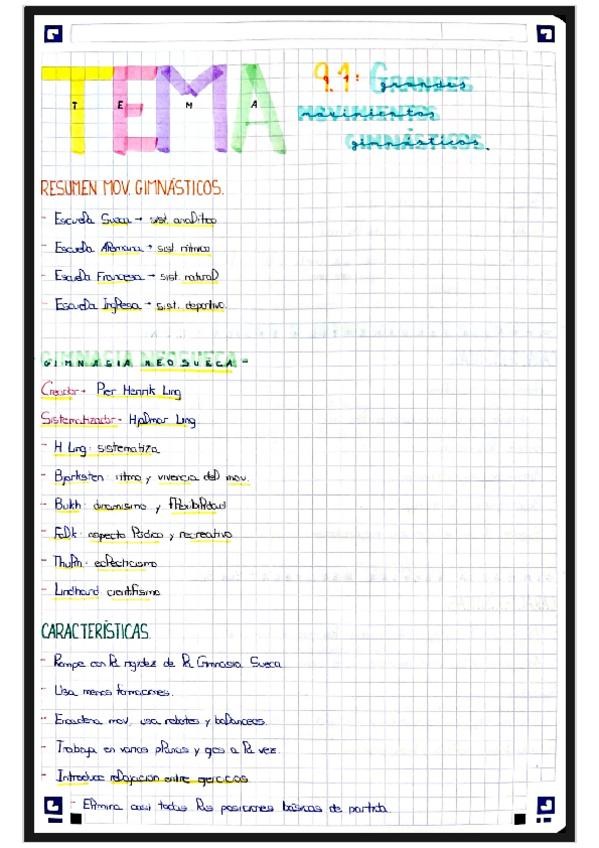 TEMA
T E M A
9.1: GRANDES
movimientos
gimnásticos.
RESUMEN MOV. GIMNÁSTICOS.
- Escuela Sueca → sist. analítico
- Escuela Alemana → sist. rítmico
- Escuela Francesa → sist. natural
- Escuela Inglesa → sist. deportivo.
GIMNASIA NEOSUECA -
Creador - Pier Henrik Ling
Sistematizador - Hjalmar Ling
- H Ling: sistematiza
- Bjorksten: ritmo y vivencia del mov.
- Bukh: dinamismo y flexibilidad
- Falk: aspecto lúdico y recreativo
- Thulin: eclecticismo
- Lindhard: cientifismo
CARACTERÍSTICAS.
- Rompe con la rigidez de la Gimnasia Sueca
- Usa menos formaciones.
- Encadena mov, usa rebotes y balanceos.
- Trabaja en varios planos y ejes a la vez.
- Introduce relajación entre ejerccos
- Elimina casi todas las posiciones básicas de partida.